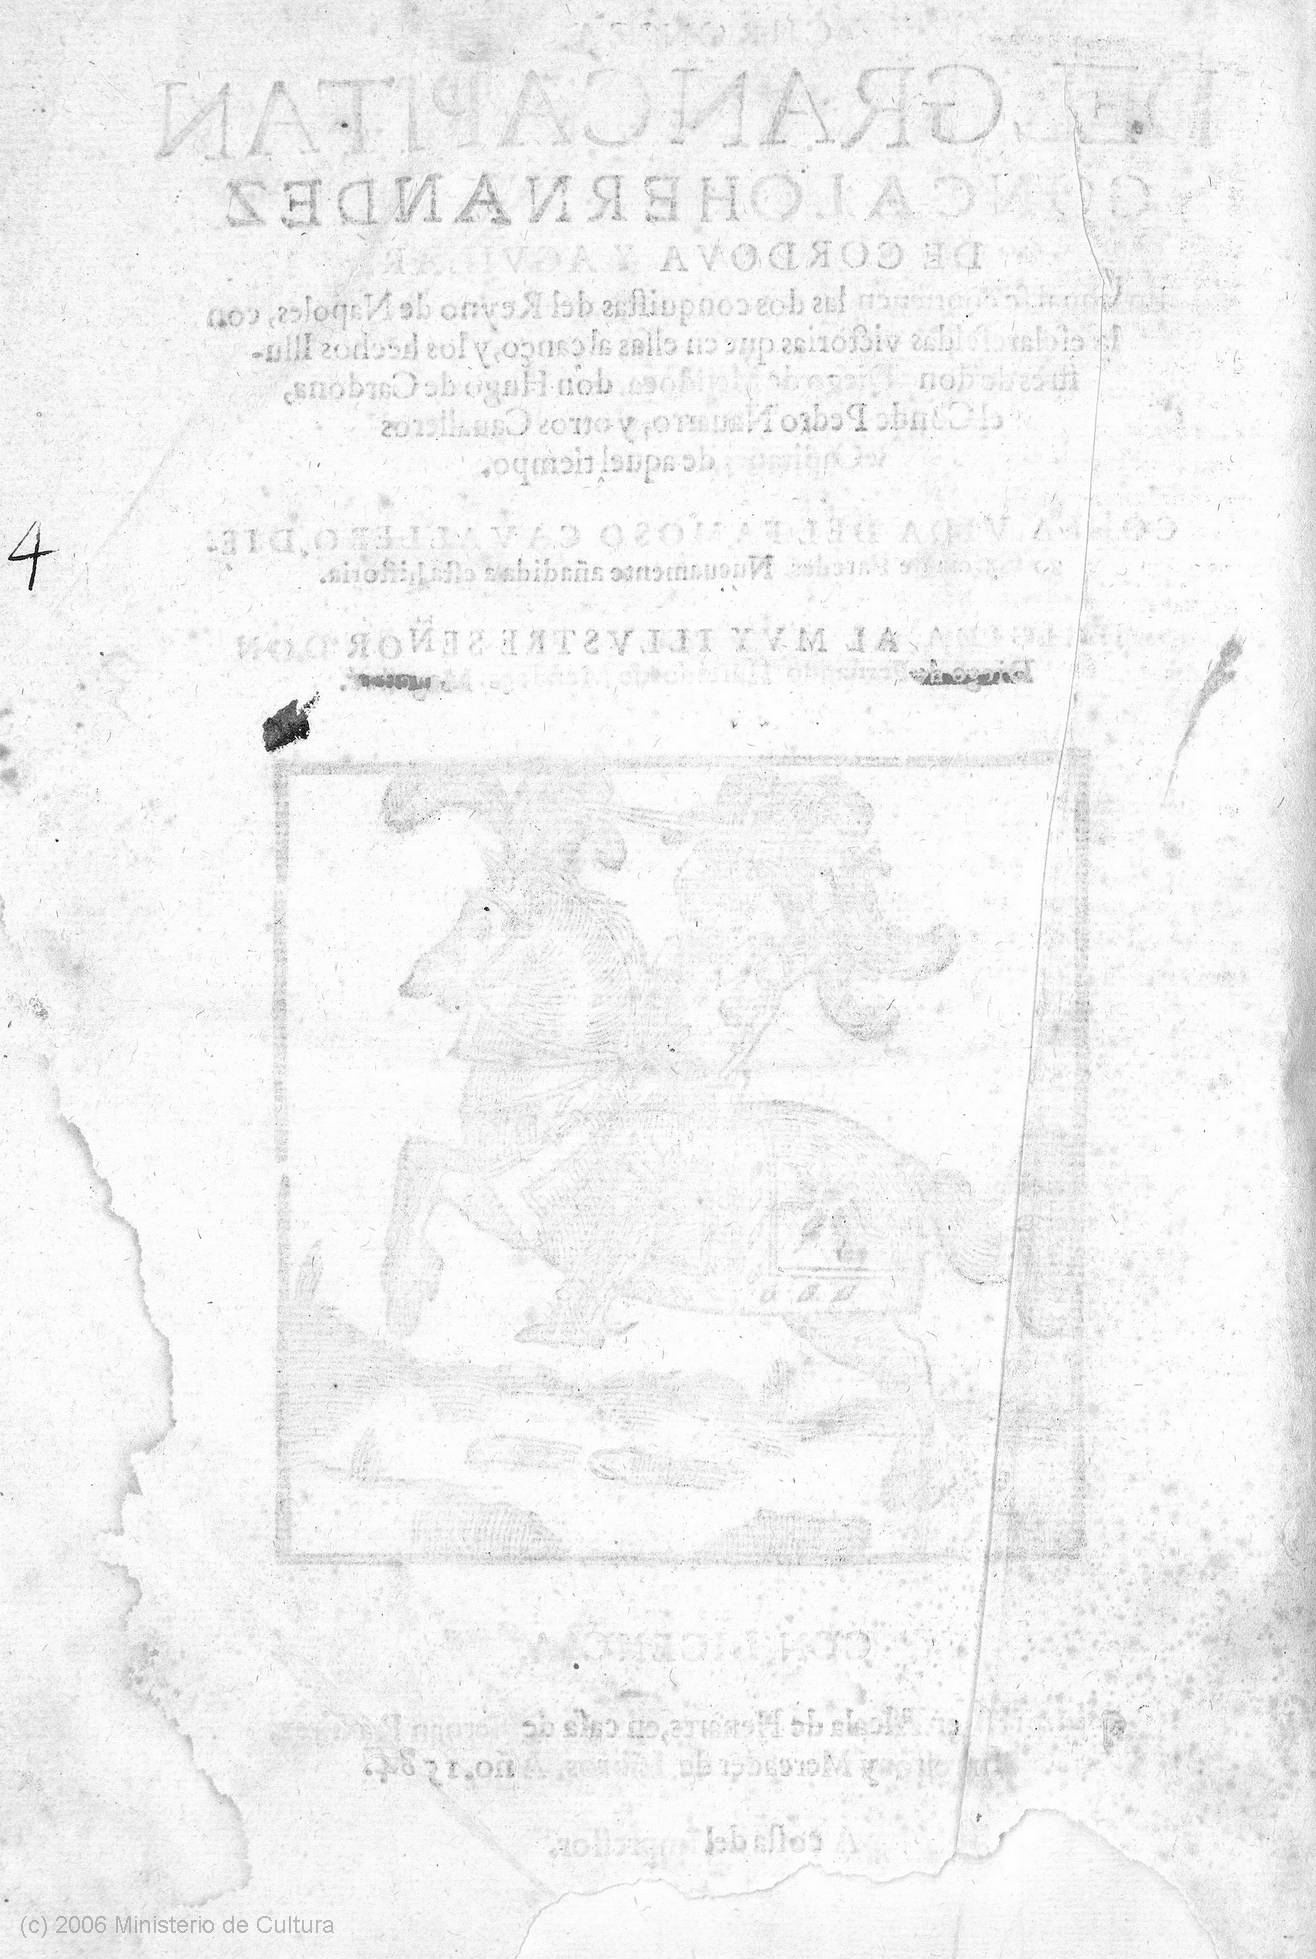 CHRONICA
DEL GRAN CAPITAN
GONCALO HERNANDEZ
DE CORDOVA Y AGVILAR.
las dos conquistas del Reyno de Napoles, con
las esclarescidas victorias que en ellas alcanço, y los hechos Illu-
stres de don Diego de Mendoça, don Hugo de Cardona,
el Conde Pedro Nauarro, y otros Caualleros
y Capitanes de aquel tiempo.
CON LA VIDA DEL FAMOSO CAVALLERO, DIE-
go Garcia de Paredes. Nueuamente añadida a esta historia.
AL MVY ILLVSTRE SEÑOR DON
Diego de
4
CON LICENCIA
En Alcala de Henares, en casa de Hernan Ramirez
Impressor y Mercader de Libros. Año. 1584.
A costa del Impressor.
(c) 2006 Ministerio de Cultura